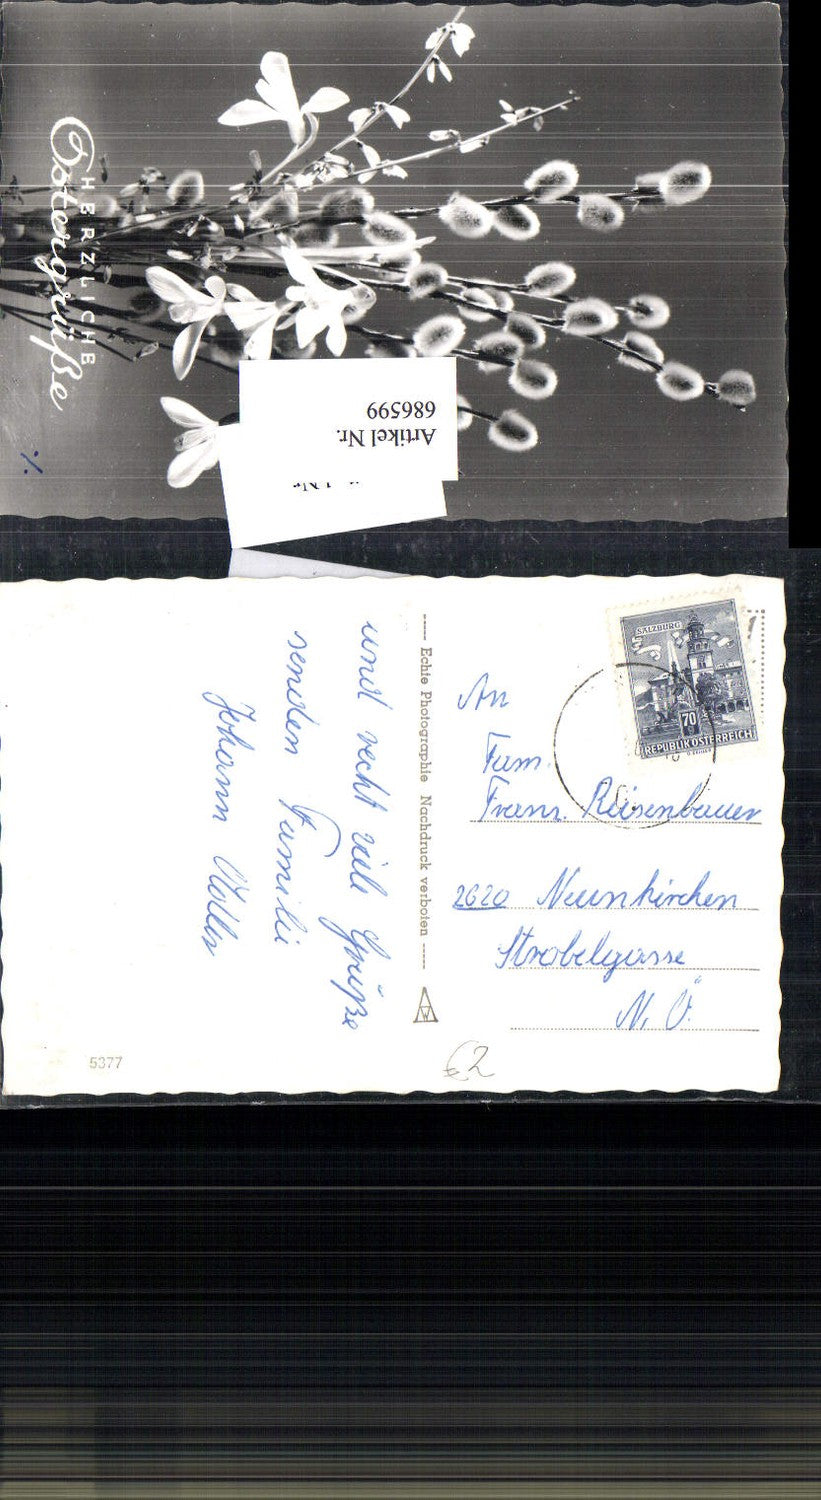 HERZLICHE
Ostergrüße
Artikel Nr.
686599
und recht viele Grüße
senden Familie
Johann
---- Echte Photographie Nachdruck verboten ----
SALZBURG
70
REPUBLIK ÖSTERREICH
An
Fam.
Franz Reisenbauer
2620 Neunkirchen
Strobelgasse
N.Ö.
5377
€2